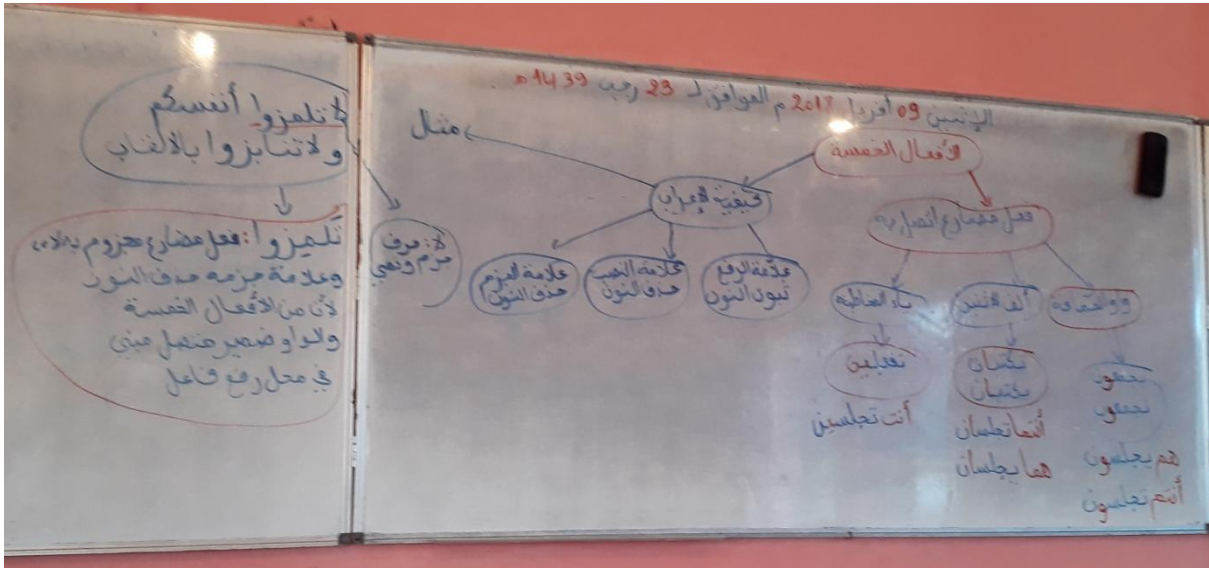 الإثنين 09 أفريل 2018 م الموافق لـ 23 رجب 1439 هـ
الأفعال الخمسة
فعل مضارع اتصل به
واو الجماعة
ألف الاثنين
ياء المخاطبة
تفعلين
هم يجلسون
أنتم تجلسون
أنتما تجلسان
هما يجلسان
أنت تجلسين
كيفية الإعراب
علامة الرفع
ثبوت النون
علامة النصب
حذف النون
علامة الجزم
حذف النون
مثال
لا تلمزوا أنفسكم
ولا تنابزوا بالألقاب
لا: حرف
جزم ونهي
تلمزوا: فعل مضارع مجزوم بـ "لا"
وعلامة جزمه حذف النون
لأن من الأفعال الخمسة
والواو ضمير متصل مبني
في محل رفع فاعل